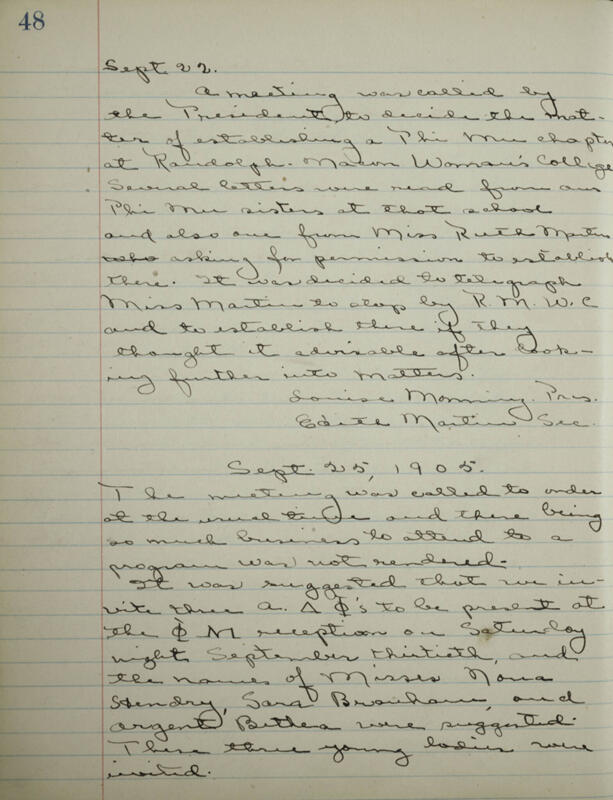 48
Sept. 22.
A meeting was called by
the President, to decide the mat-
ter of establishing a Phi Mu chapter
at Randolph-Macon Woman's College
Several letters were read from our
Phi Mu sisters at that school
and also one from Miss Ruth Martin
who asking for permission to establish
there. It was decided to telegraph
Miss Martin to stop by R. M. W. C
and to establish there if they
thought it advisable after look-
ing further into matters.
Louise Monning, Pres.
Edith Martin Sec.
Sept. 25, 1905.
The meeting was called to order
at the usual time and there being
so much business to attend to a
program was not rendered.
It was suggested that we in-
vite three A. Δ Φ's to be present at
the Φ M reception on Saturday
night September thirtieth, and
the names of Misses Nona
Hendry, Sara Branham, and
Argent Bethea were suggested.
These three young ladies were
invited.